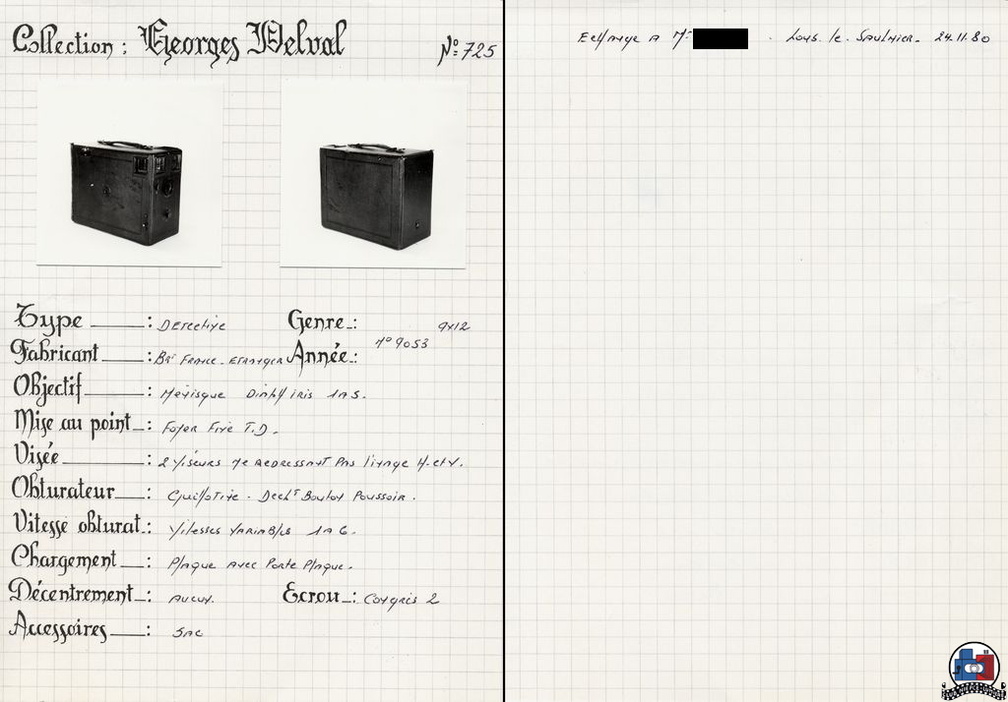 Collection : Georges Delval
N° 725
Type : Detective Genre : 9x12
Fabricant : Bté France - Etranger Année : n° 9053
Objectif : Ménisque Diaph/ iris 1 à 5.
Mise au point : Foyer Fixe T.D.
Visée : 2 Viseurs ne redressant pas l'image H. et V.
Obturateur : Guillotine - Declt Bouton Poussoir.
Vitesse obturat. : Vitesses Variables 1 à 6.
Chargement : Plaque avec Porte Plaque.
Décentrement : Aucun. Ecrou : Congrès 2
Accessoires : Sac
Echange a Mr . Lons. le. Saulnier. 24.11.80